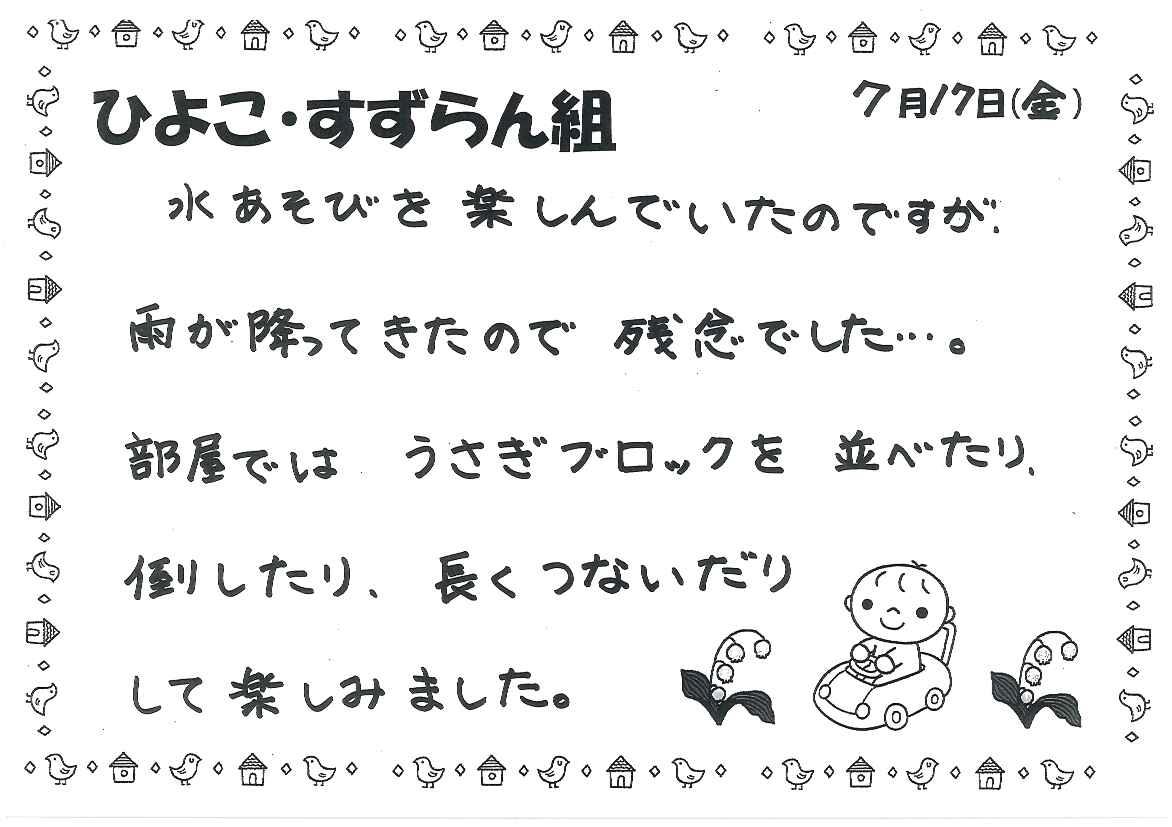 ひよこ・すずらん組
7月17日(金)
水あそびを 楽しんでいたのですが、
雨が降ってきたので 残念でした…。
部屋では うさぎブロックを 並べたり、
倒したり、長くつないだり
して楽しみました。